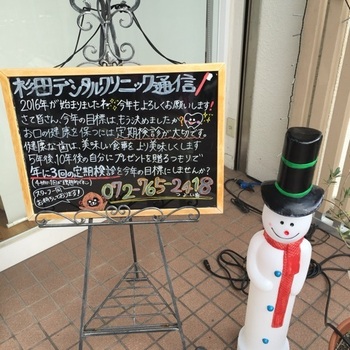 杉田デンタルクリニック通信
2016年が始まりましたね 今年も よろしくお願いします!
さて皆さん、今年の目標は もう決めましたか?
お口の健康を保つには 定期検診が 大切です。
健康な歯は、美味しい食事を より美味しくします
5年後、10年後の自分に プレゼントを 贈るつもりで
年に3回の定期検診を 今年の目標にしませんか?
スタッフ一同
お待ちしております!
072-765-2418